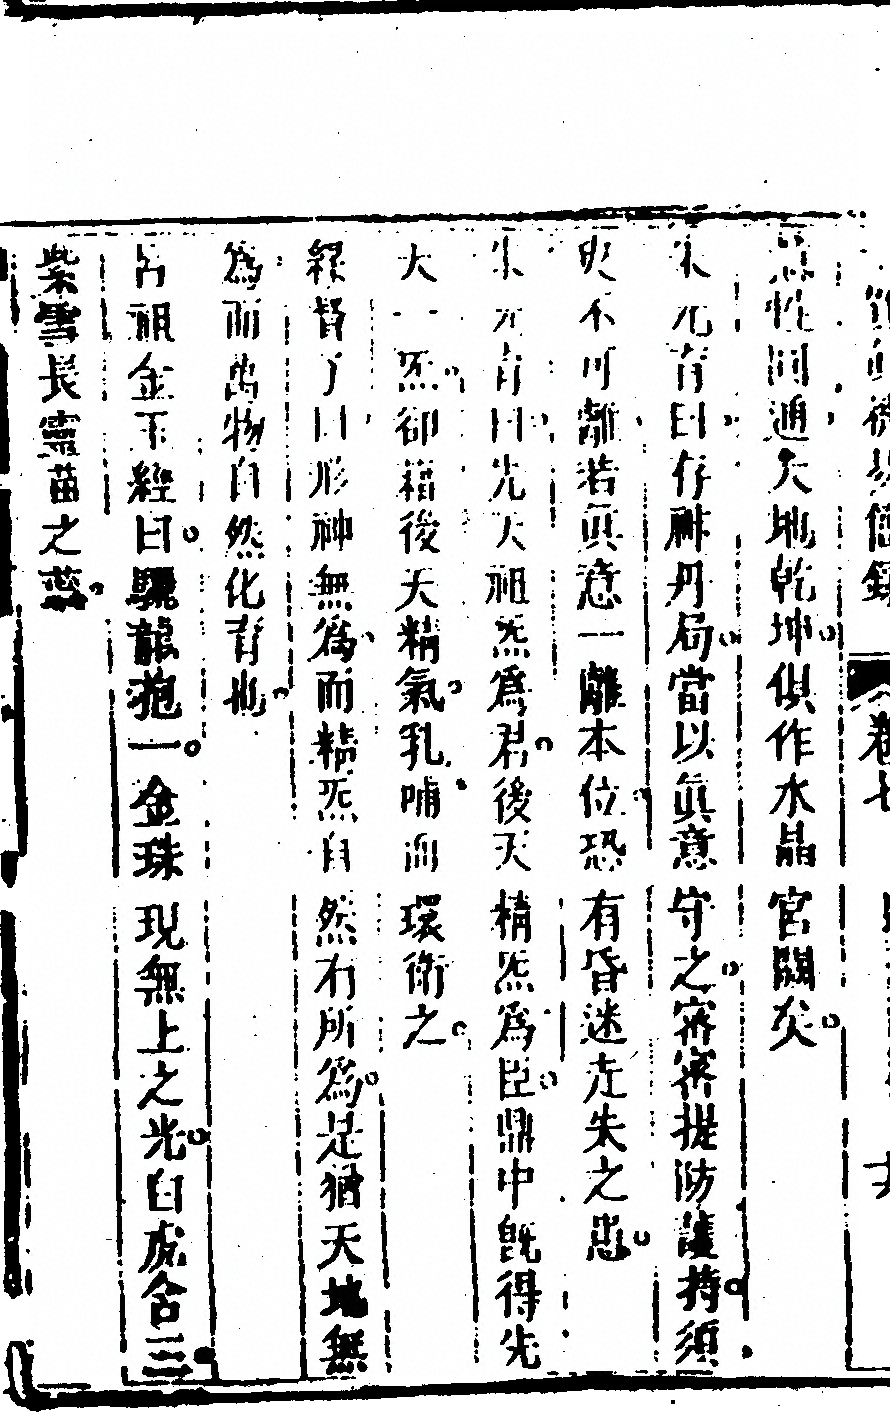 性同通大地乾坤俱作水晶宮闕矣
朱元育曰存神丹局當以眞意守之審審提防護持須
臾不可離若眞意一離本位恐有昏迷走失之患
朱元育曰先天祖炁爲君後天精炁爲臣鼎中既得先
天一炁卻藉後天精氣乳哺而環衛之
緣督子曰形神無爲而精炁自然有所爲是猶天地無
爲而萬物自然化育也
呂祖金玉經曰驪龍抱一金珠現無上之光白虎含三
紫雪長靈苗之蕊
卷七